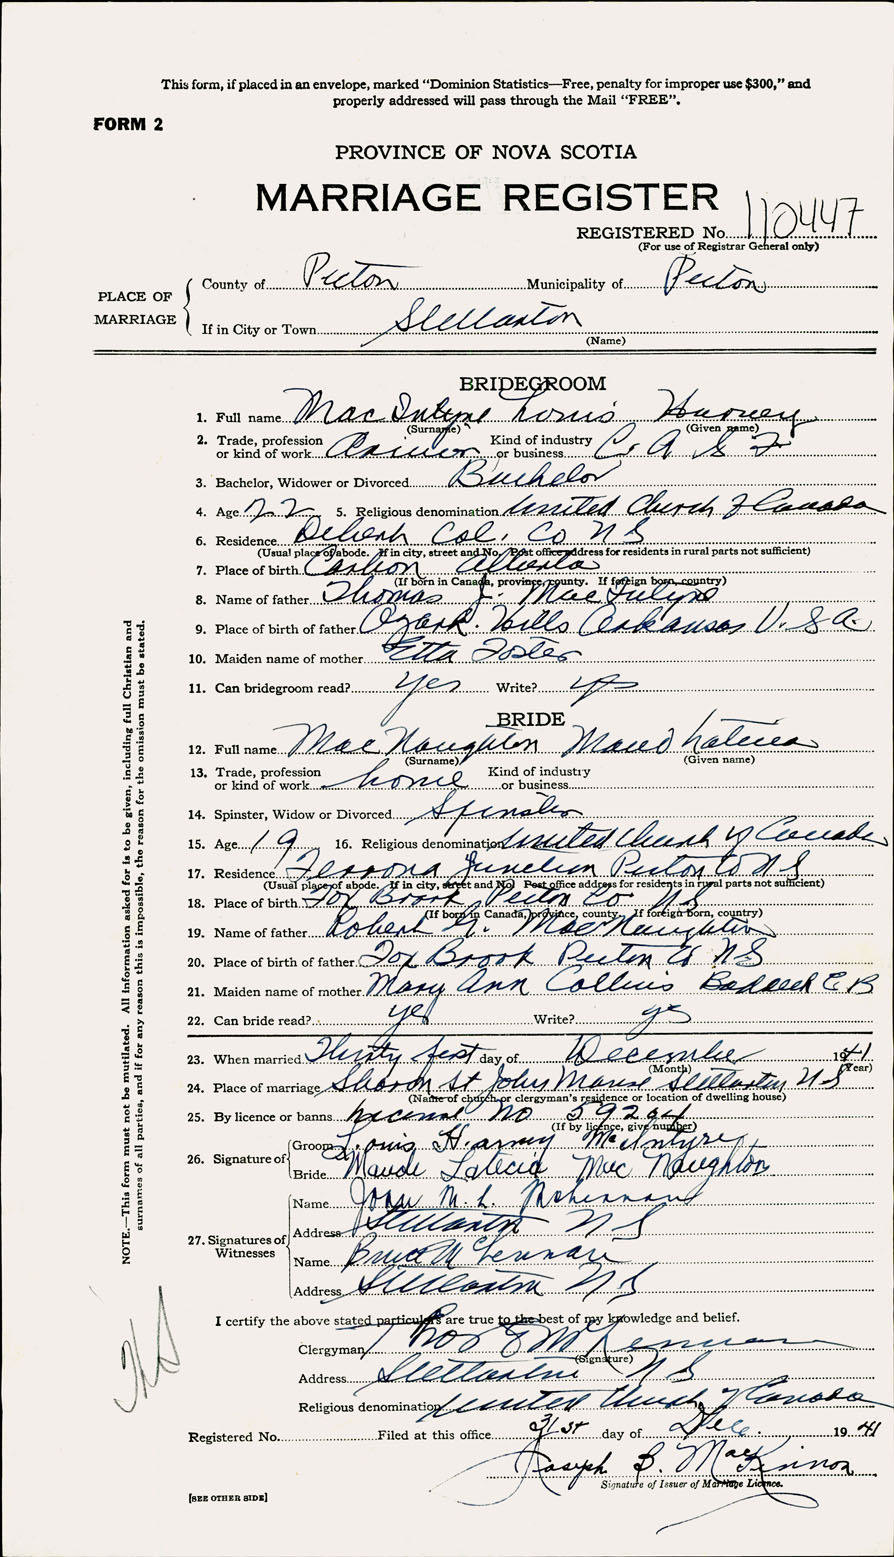 This form, if placed in an envelope, marked "Dominion Statistics—Free, penalty for improper use $300," and
properly addressed will pass through the Mail "FREE".
FORM 2
PROVINCE OF NOVA SCOTIA
MARRIAGE REGISTER
REGISTERED No. 110447
(For use of Registrar General only)
PLACE OF MARRIAGE
County of Pictou Municipality of Pictou
If in City or Town Stellarton
(Name)
BRIDEGROOM
1. Full name MacIntyre Louis Harvey
(Surname) (Given name)
2. Trade, profession or kind of work Driver Kind of industry or business C. A S F
3. Bachelor, Widower or Divorced Bachelor
4. Age 22 5. Religious denomination United Church of Canada
6. Residence Debert Col. Co N S
(Usual place of abode. If in city, street and No. Post office address for residents in rural parts not sufficient)
7. Place of birth Alberta
(If born in Canada, province, county. If foreign born, country)
8. Name of father Thomas J. MacIntyre
9. Place of birth of father Ozark Hills Arkansas U. S A.
10. Maiden name of mother Etta Foster
11. Can bridegroom read? Yes Write? yes
BRIDE
12. Full name MacNaughton Maud Laticia
(Surname) (Given name)
13. Trade, profession or kind of work home Kind of industry or business
14. Spinster, Widow or Divorced Spinster
15. Age 19 16. Religious denomination United Church of Canada
17. Residence Ferrona Junction Pictou Co N S
(Usual place of abode. If in city, street and No. Post office address for residents in rural parts not sufficient)
18. Place of birth Fox Brook Pictou Co N S
(If born in Canada, province, county. If foreign born, country)
19. Name of father Robert MacNaughton
20. Place of birth of father Fox Brook Pictou Co N S
21. Maiden name of mother Mary Ann Collins Baddeck C B
22. Can bride read? yes Write? yes
23. When married Thirty first day of December 1941
(Month) (Year)
24. Place of marriage Sharon St Johns Manse Stellarton N S
(Name of church or clergyman's residence or location of dwelling house)
25. By licence or banns License No 59264
(If by licence, give number)
26. Signature of
Groom Louis Harvey McIntyre
Bride Maude Latecia MacNaughton
27. Signatures of Witnesses
Name M. L.
Address Stellarton N S
Name Bruce McLennan
Address Stellarton N S
I certify the above stated particulars are true to the best of my knowledge and belief.
Clergyman Thos
(Signature)
Address Stellarton N S
Religious denomination United Church of Canada
Registered No. Filed at this office 31st day of Dec. 1941
Joseph B. MacKinnon
Signature of Issuer of Marriage Licence.
[SEE OTHER SIDE]
NOTE.—This form must not be mutilated. All information asked for is to be given, including full Christian and
surnames of all parties, and if for any reason this is impossible, the reason for the omission must be stated.